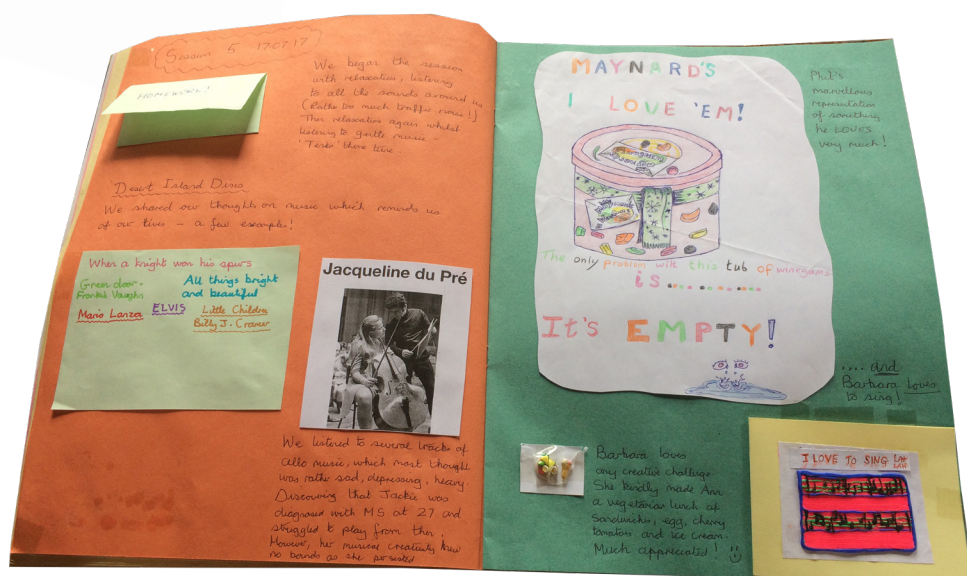 Session 5 17.07.17
HOMEWORK!
We began the session
with relaxation, listening
to all the sounds around us
(Rather too much traffic noise!)
Then relaxation again whilst
listening to gentle music.
there
Desert Island Discs
We shared our thoughts on music which reminds us
of our lives – a few examples!
When a knight won his spurs
Green door -
Frankie Vaughn
All things bright
and beautiful
Mario Lanza
ELVIS
Little Children
Billy J. Cramer
Jacqueline du Pré
We listened to several tracks of
cello music, which most thought
was rather sad, depressing, heavy.
Discovering that Jackie was
diagnosed with MS at 27 and
struggled to play from then.
However, her musical creativity knew
no bounds as she persisted
MAYNARD'S
I LOVE 'EM!
The only problem with this tub of winegums
is........
It's EMPTY!
Phil's
marvellous
representation
of something
he LOVES
very much!
.... and
Barbara Loves
to sing!
Barbara loves
any creative challenge.
She kindly made Ann
a vegetarian lunch of
Sandwiches, egg, cherry
tomatoes and ice cream.
Much appreciated!
I LOVE TO SING LAH
LAH